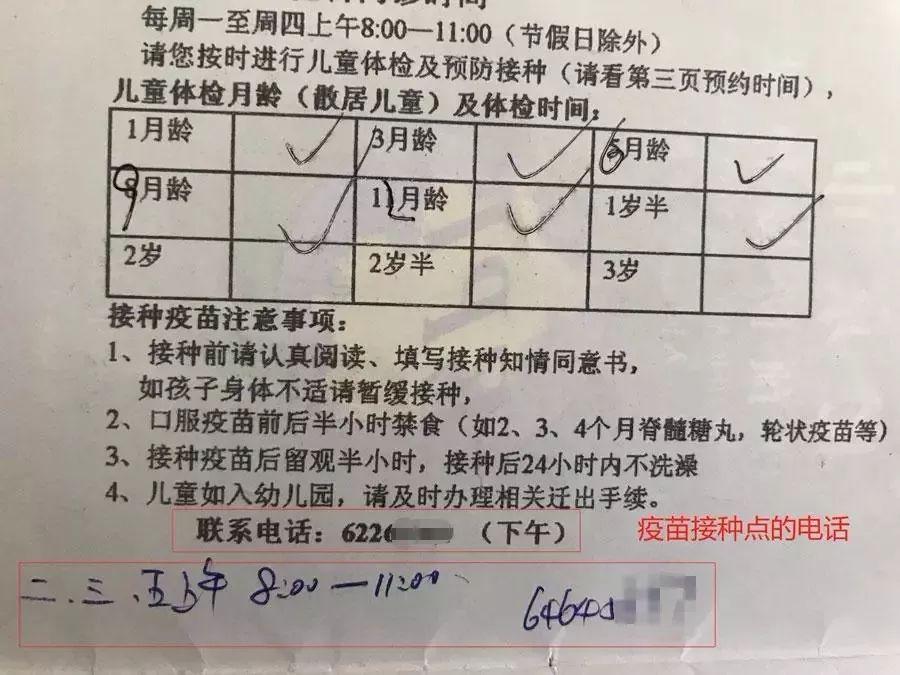 每周一至周四上午8:00—11:00（节假日除外）
请您按时进行儿童体检及预防接种（请看第三页预约时间），
儿童体检月龄（散居儿童）及体检时间：
1月龄 ✓ 3月龄 ✓ 6月龄 ✓
9月龄 ✓ 12月龄 ✓ 1岁半 ✓
2岁 2岁半 3岁
接种疫苗注意事项：
1、接种前请认真阅读、填写接种知情同意书，
如孩子身体不适请暂缓接种，
2、口服疫苗前后半小时禁食（如2、3、4个月脊髓糖丸，轮状疫苗等）
3、接种疫苗后留观半小时，接种后24小时内不洗澡
4、儿童如入幼儿园，请及时办理相关迁出手续。
联系电话：6226 （下午）
疫苗接种点的电话
二.三.五上午 8:00—11:00
6464